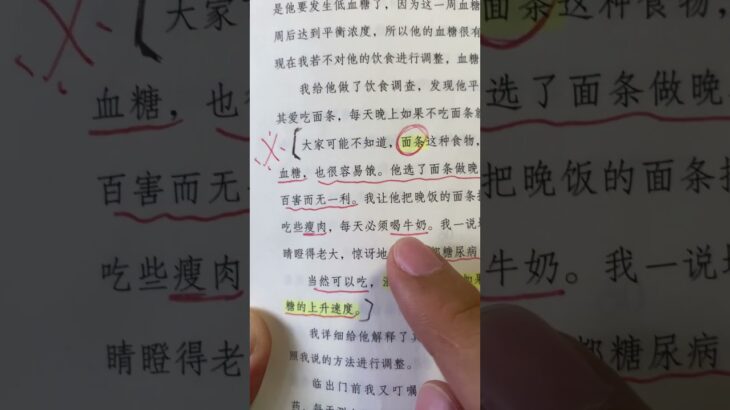 是他要发生低血糖了,因为这一周血糖
周后达到平衡浓度,所以他的血糖很有
现在我若不对他的饮食进行调整,血糖
我给他做了饮食调查,发现他平
其爱吃面条,每天晚上如果不吃面条就
大家可能不知道,面条这种食物,
血糖,也很容易饿。他选了面条做晚
百害而无一利。我让他把晚饭的面条
吃些瘦肉,每天必须喝牛奶。我一说
睛瞪得老大,惊讶地 糖尿病
当然可以吃, 如果
糖的上升速度。
我详细给他解释了
照我说的方法进行调整。
临出门前我又叮嘱
药,每天